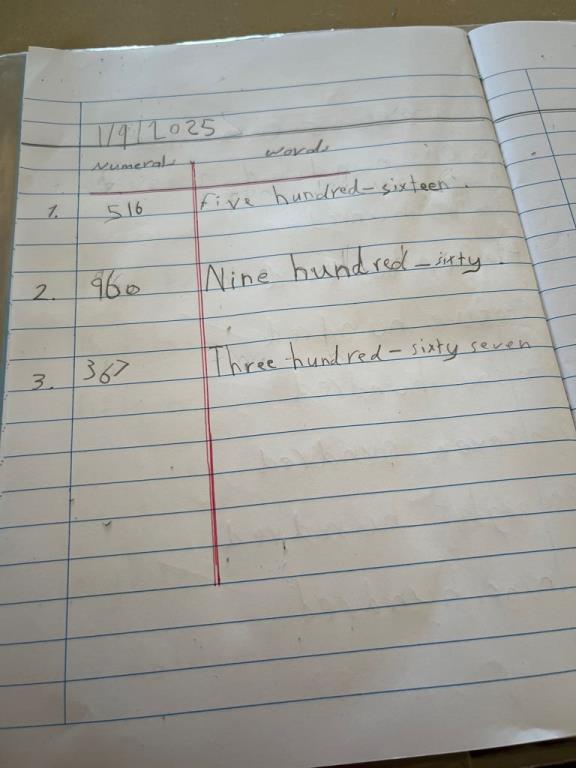 1/9/2025
Numerals words
1. 516 five hundred-sixteen.
2. 960 Nine hundred-sixty.
3. 367 Three hundred-sixty seven